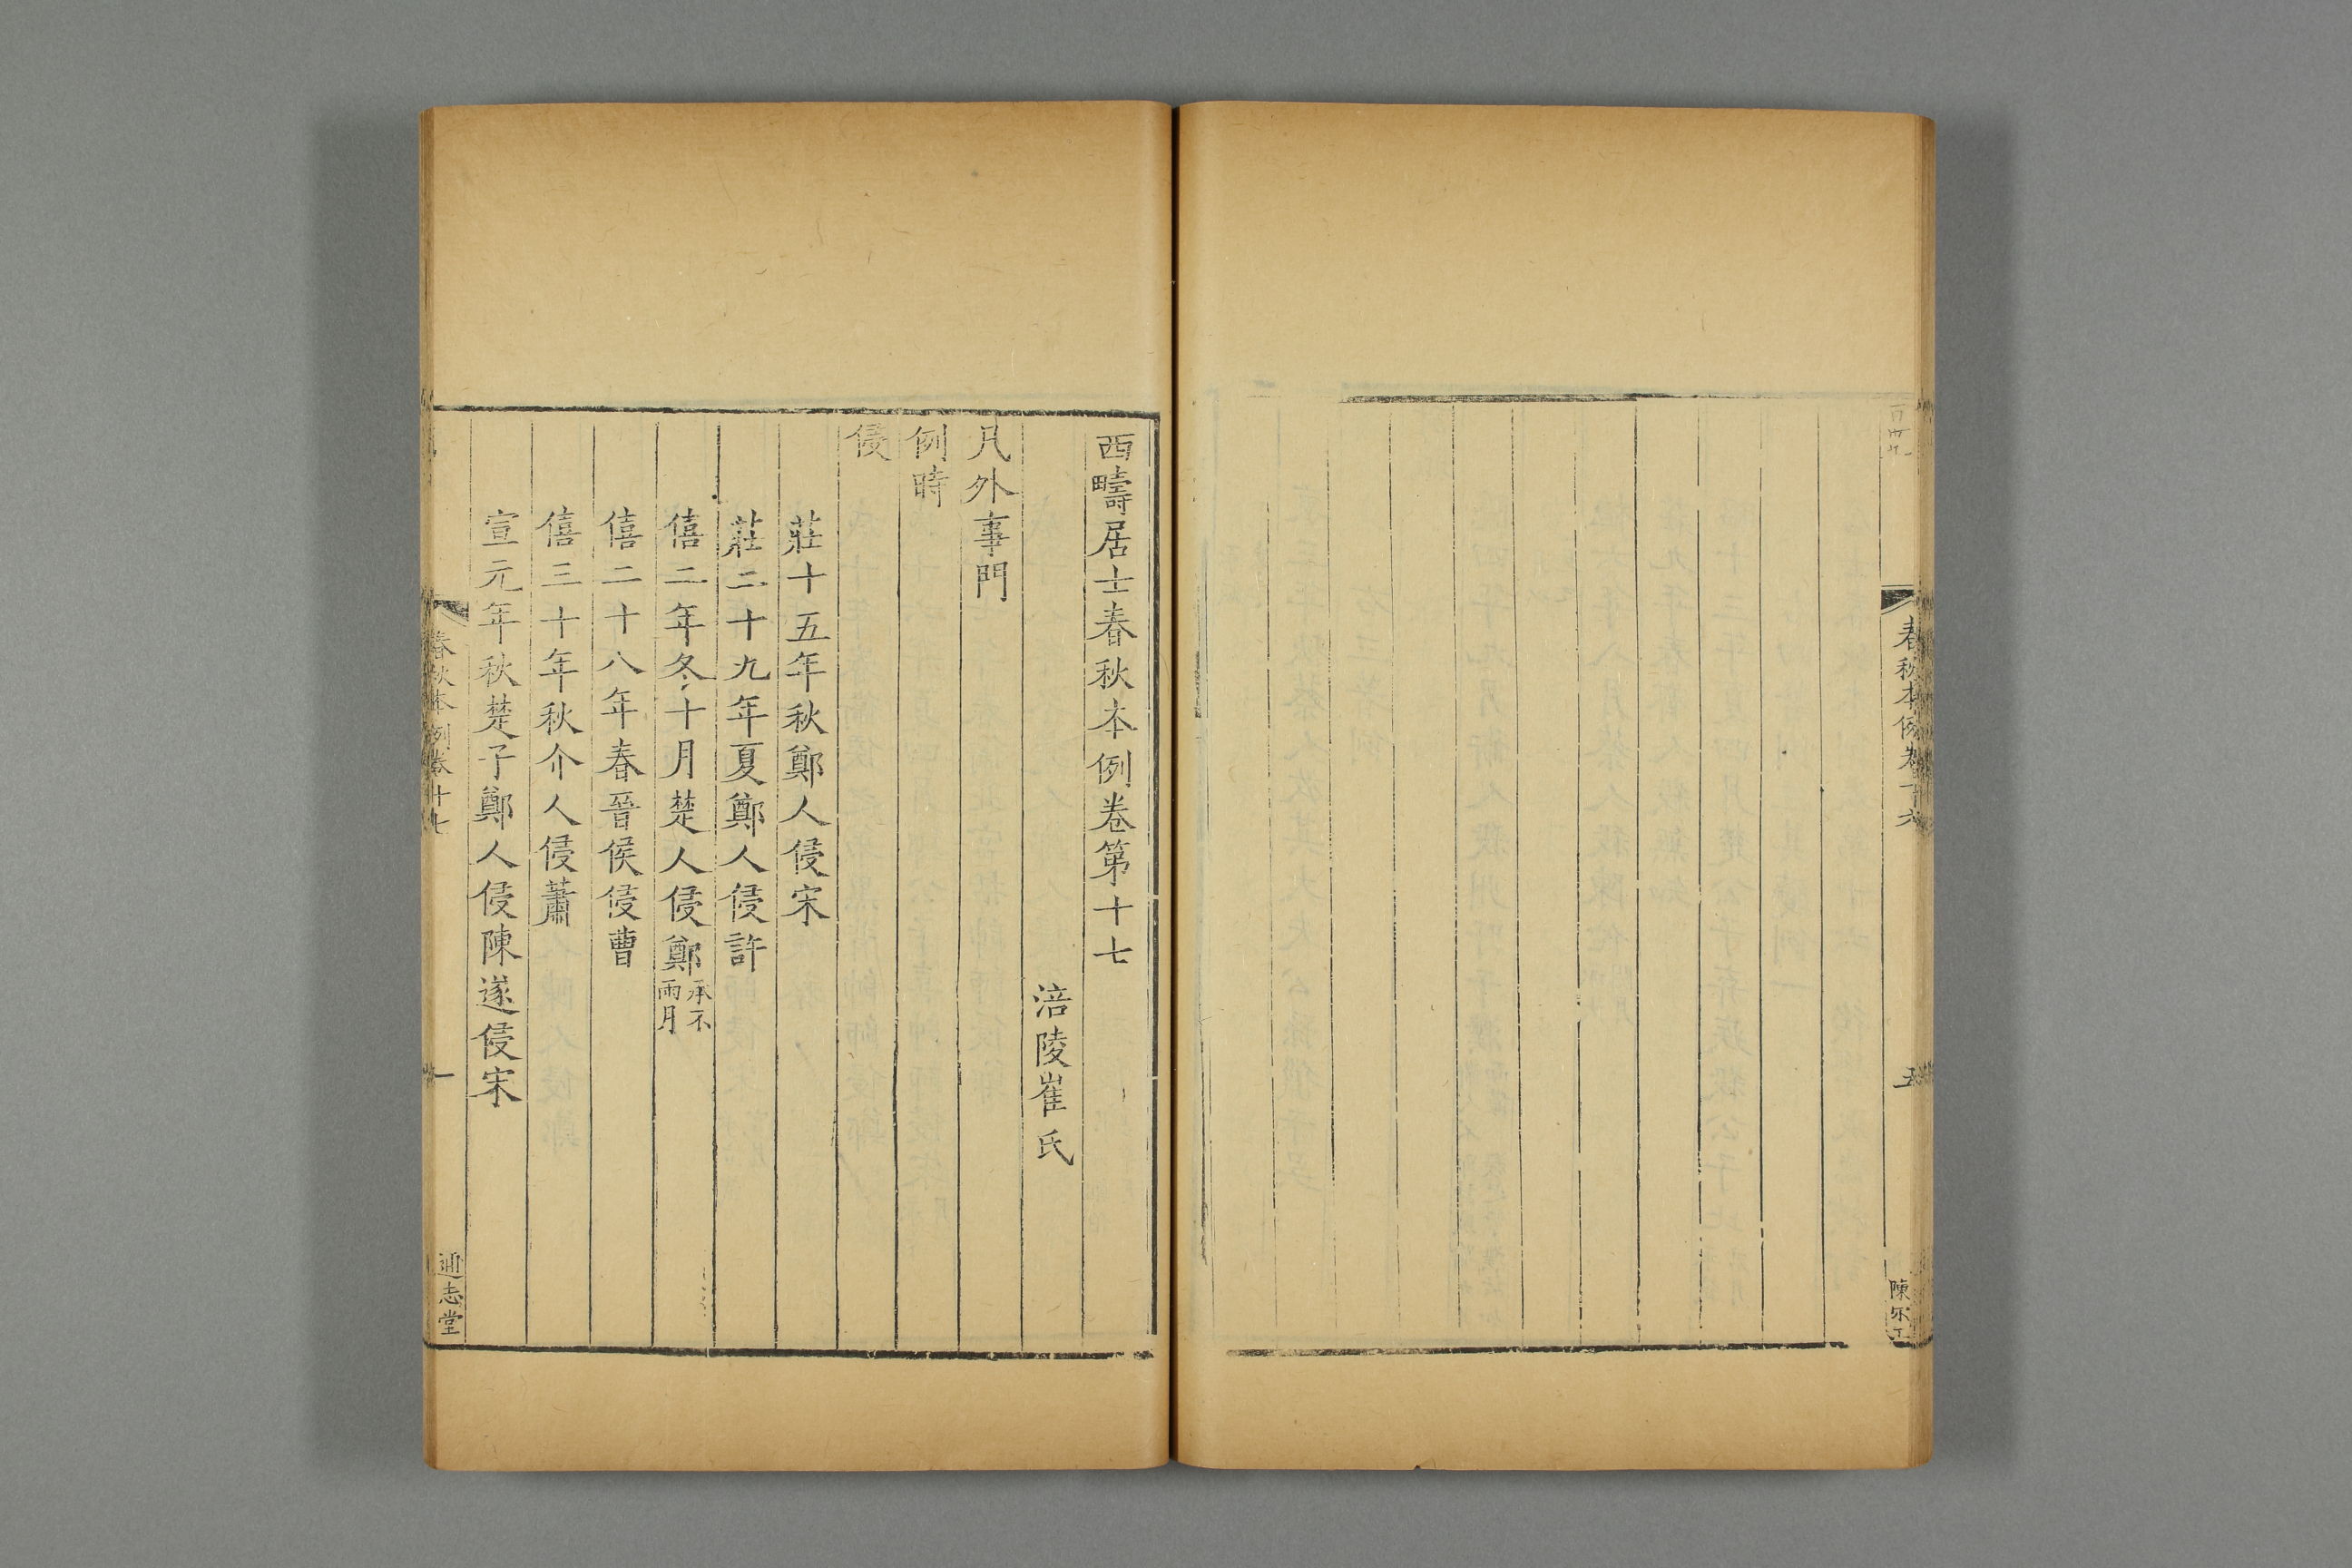 春秋本例卷十六
五
西疇居士春秋本例卷第十七
涪陵崔氏
凡外事門
例時
侵
莊十五年秋鄭人侵宋
莊二十九年夏鄭人侵許
僖二年冬十月楚人侵鄭承不雨月
僖二十八年春晉侯侵曹
僖三十年秋介人侵蕭
宣元年秋楚子鄭人侵陳遂侵宋
春秋本例卷十七
一
通志堂